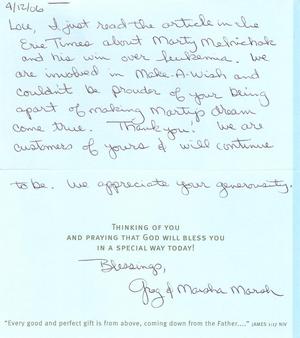 4/12/06
Lou, I just read the article in the
Erie Times about Marty Melnichak
and his win over leukemia. We
are involved in Make-A-Wish and
couldn't be prouder of your being
apart of making Marty's dream
come true. Thank you! We are
customers of yours & will continue
to be. We appreciate your generousity.
THINKING OF YOU
AND PRAYING THAT GOD WILL BLESS YOU
IN A SPECIAL WAY TODAY!
Blessings,
Greg & Marsha Marsh
"Every good and perfect gift is from above, coming down from the Father...." JAMES 1:17 NIV